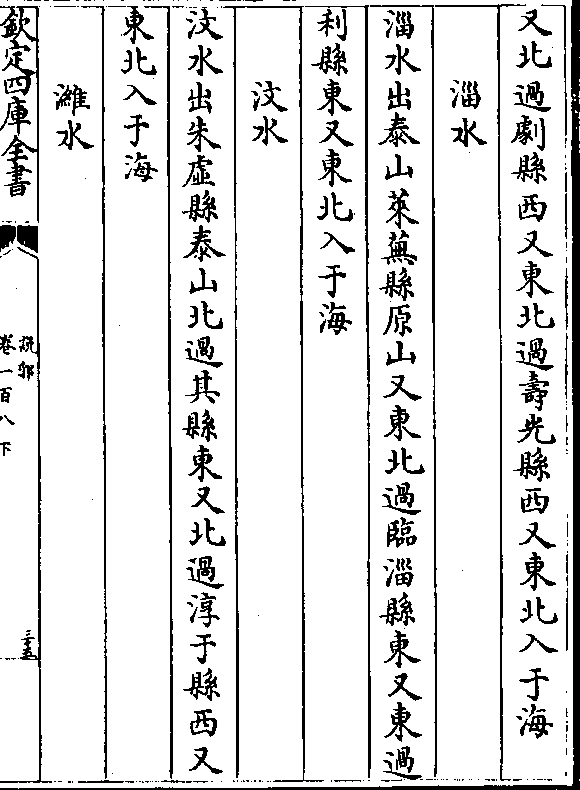 又北過劇縣西又東北過壽光縣西又東北入于海
淄水
淄水出泰山萊蕪縣原山又東北過臨淄縣東又東過
利縣東又東北入于海
汶水
汶水出朱虛縣泰山北過其縣東又北過淳于縣西又
東北入于海
濰水
欽定四庫全書
說郛
卷一百八下
三十五